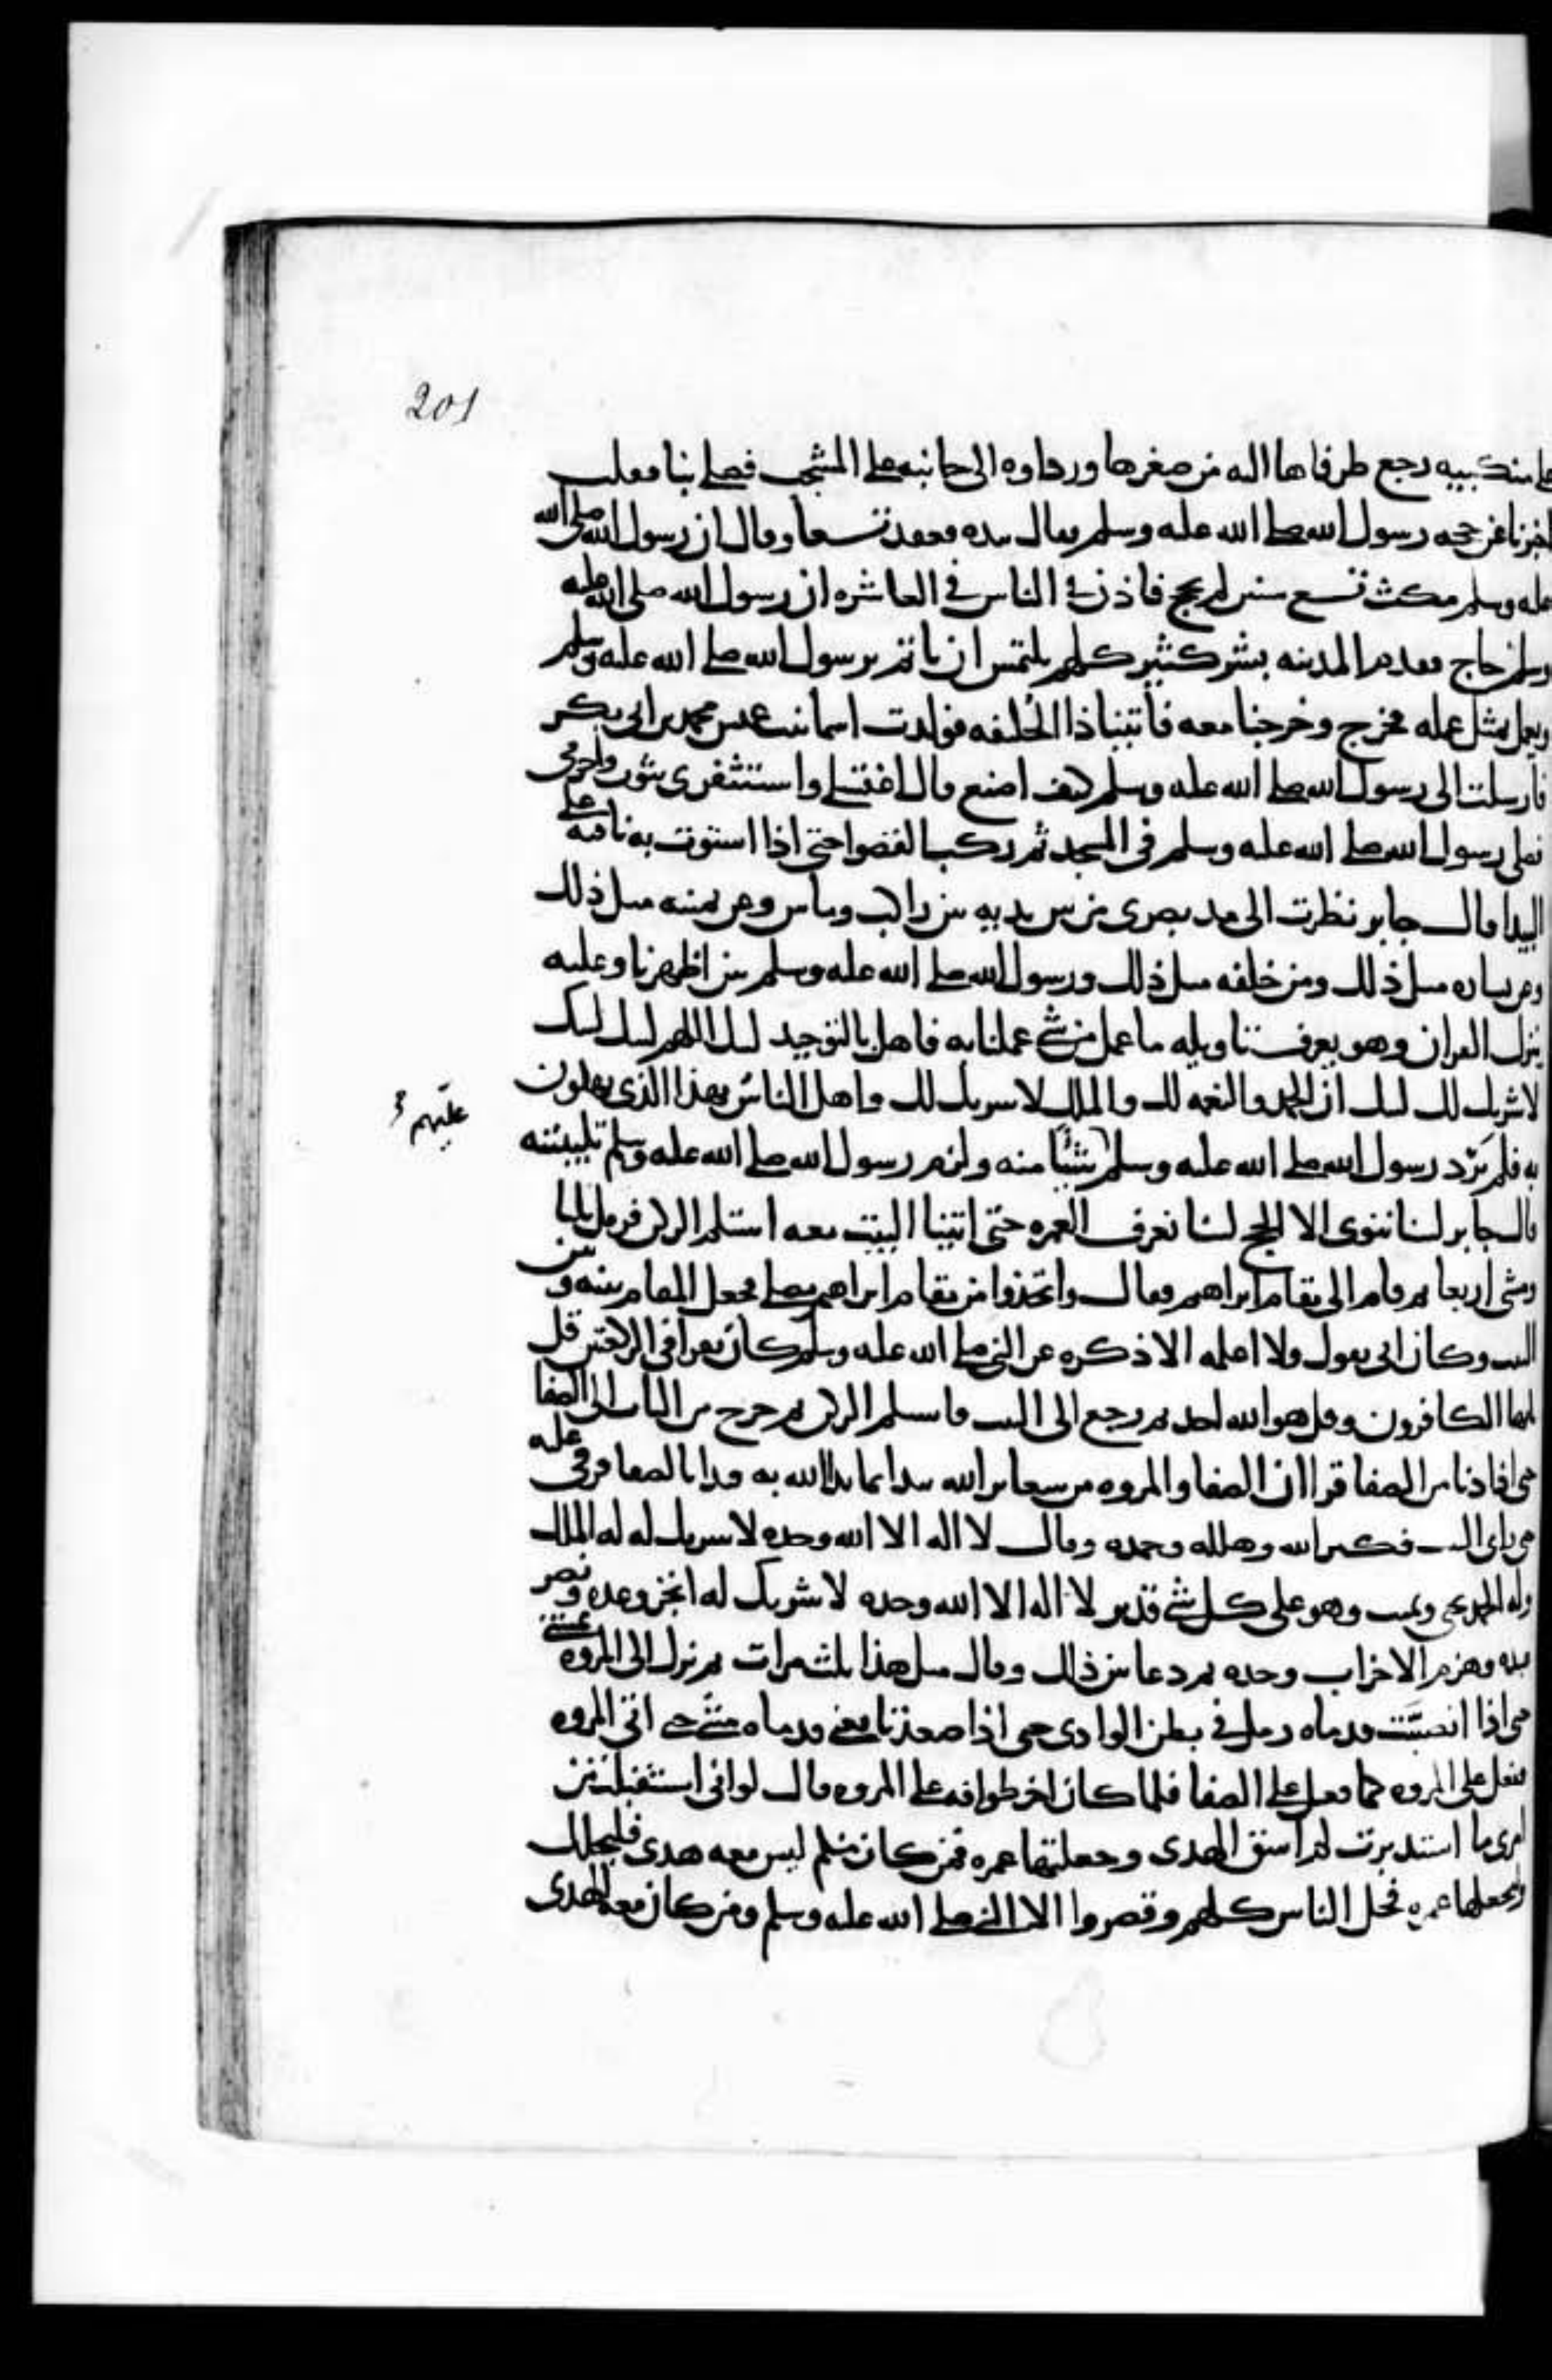 201
على منكبيه رجع طرفاها اليه من صغرها ورداوه الى جانبه على المشجب فصلى بنا فقلت
اخبرنا عن حجه رسول الله صلى الله عليه وسلم فقال بيده فعقد تسعا وقال ان رسول الله صلى الله
عليه وسلم مكث تسع سنين لم يحج فاذن في الناس في العاشره ان رسول الله صلى الله عليه
وسلم حاج فقدم المدينه بشر كثير كلهم يلتمس ان ياتم برسول الله صلى الله عليه وسلم
ويعمل بمثل عمله فخرج وخرجنا معه فأتينا ذا الحليفه فولدت اسما بنت عميس محمد بن ابى بكر
فارسلت الى رسول الله صلى الله عليه وسلم كيف اصنع قال اغتسلي واستثفري بثوب واحرمي
فصلى رسول الله صلى الله عليه وسلم في المسجد ثم ركب القصوا حتى اذا استوت به ناقته على
البيدا قال جابر نظرت الى مد بصرى من بين يديه من راكب وماش وعن يمينه مثل ذلك
وعن يساره مثل ذلك ومن خلفه مثل ذلك ورسول الله صلى الله عليه وسلم بين اظهرنا وعليه
ينزل القران وهو يعرف تاويله ما عمل من شي عملنا به فاهل بالتوحيد لبيك اللهم لبيك لبيك
لا شريك لك لبيك ان الحمد والنعمه لك والملك لا شريك لك واهل الناس بهذا الذي يهلون
عليهم
به فلم يَرُد رسول الله صلى الله عليه وسلم شيئا منه ولزم رسول الله صلى الله عليه وسلم تلبيته
قال جابر لسنا ننوى الا الحج لسنا نعرف العمره حتى اتينا البيت معه استلم الركن فرمل ثلثا
ومشى اربعا ثم قام الى مقام ابراهيم فقال واتخذوا من مقام ابراهيم مصلى فجعل المقام بينه وبين
البيت وكان ابى يقول ولا اعلمه الا ذكره عن النبي صلى الله عليه وسلم كان يقرا في الركعتين قل
يايها الكافرون وقل هو الله احد ثم رجع الى البيت فاستلم الركن ثم خرج من الباب الى الصفا
حتى اذا دنا من الصفا قرا ان الصفا والمروه من شعاير الله نبدا بما بدا الله به فبدا بالصفا فرقى عليه
حتى راى البيت فكبر الله وهلله وحمده وقال لا اله الا الله وحده لا شريك له له الملك
وله الحمد يحيى ويميت وهو على كل شي قدير لا اله الا الله وحده لا شريك له انجز وعده ونصر
عبده وهزم الاحزاب وحده ثم دعا بين ذلك وقال مثل هذا ثلث مرات ثم نزل الى المروه
حتى اذا انصبَّت قدماه رمل في بطن الوادى حتى اذا صعدتا يعني قدماه مشي حتى اتى المروه
ففعل على المروه كما فعل على الصفا فلما كان اخر طوافه على المروه قال لو اني استقبلت من
امرى ما استدبرت لم اسق الهدى وجعلتها عمره فمن كان منكم ليس معه هدى فليحلل
وليجعلها عمره فحل الناس كلهم وقصروا الا النبي صلى الله عليه وسلم ومن كان معه الهدى